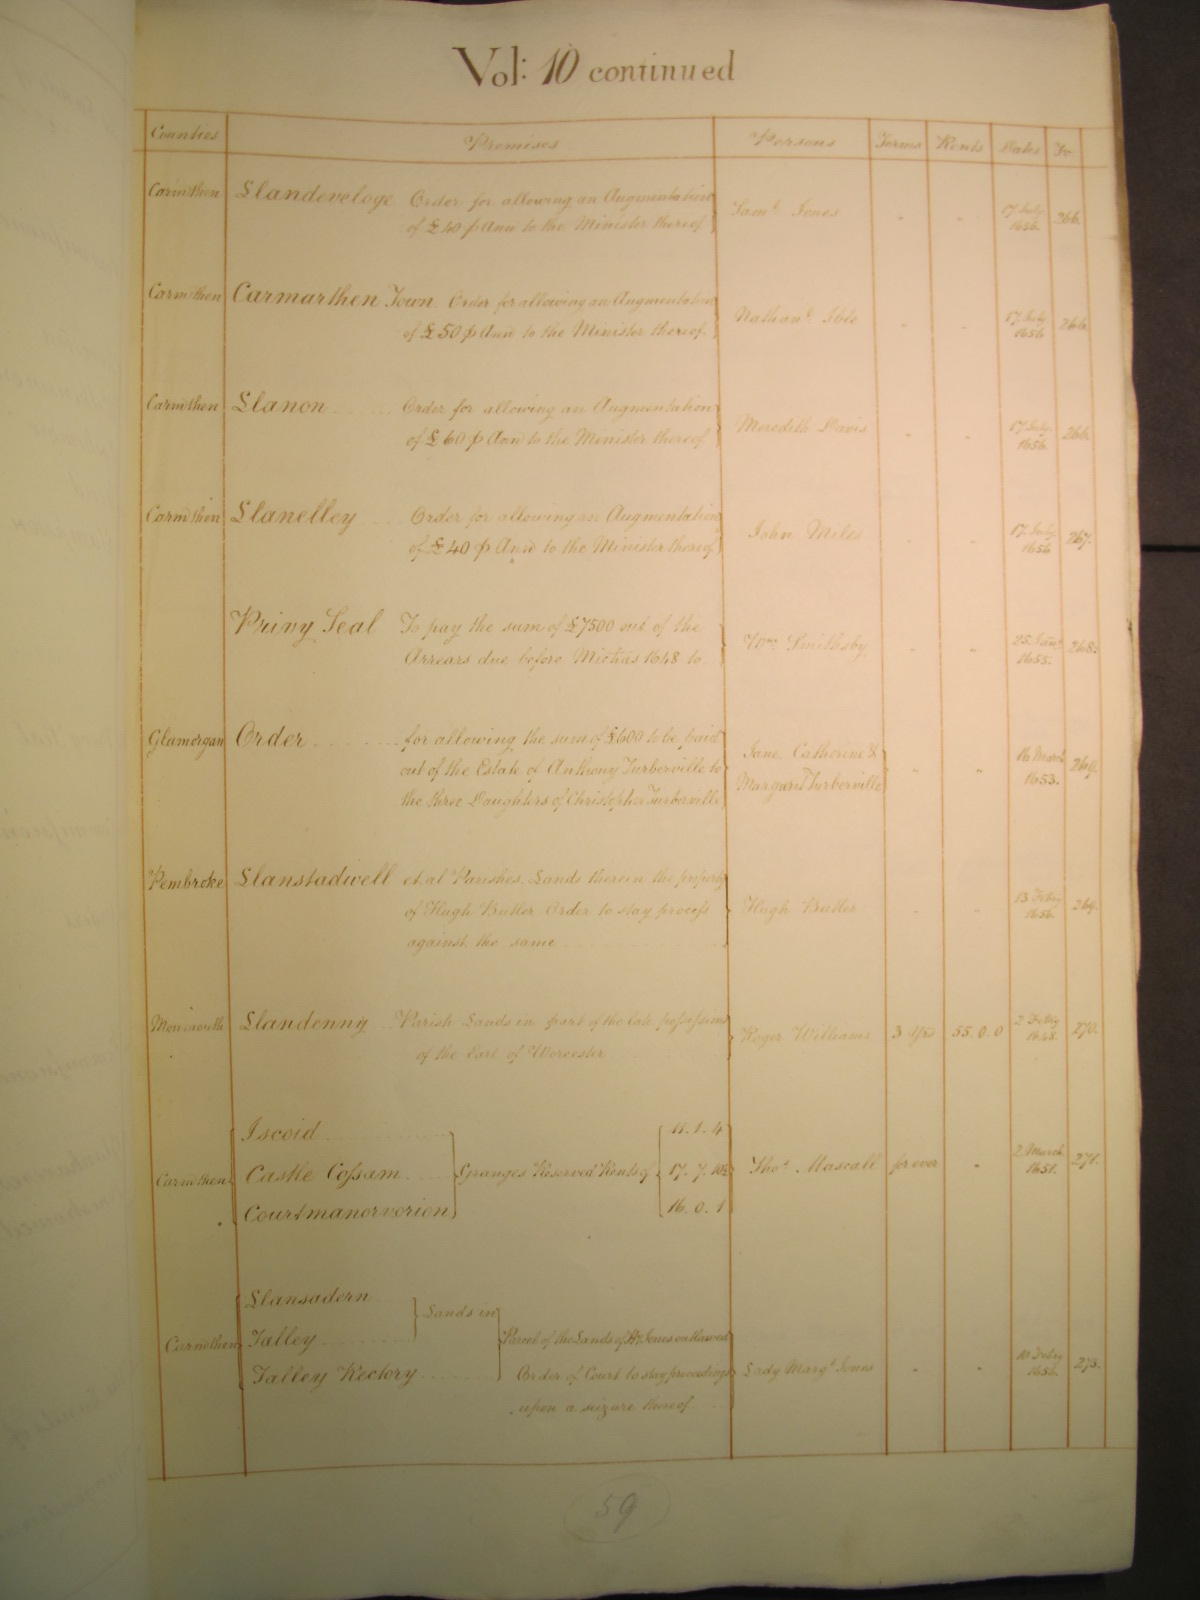 Vol: 10 continued
Counties Premises Persons Terms Rents Dates Fo
Carmthen Llandeveloge Order for allowing an Augmentation Saml. Jones - - 17 July 1656. 266.
of £40 p Ann to the Minister thereof
Carmthen Carmarthen Town Order for allowing an Augmentation Nathanl. Eble - - 17 July 1656 266.
of £50 p Ann to the Minister thereof
Carmthen Llanon Order for allowing an Augmentation Meredith Davis - - 17 July 1656. 266.
of £60 p Ann to the Minister thereof
Carmthen Llanelley Order for allowing an Augmentation John Miles - - 17 July 1656 267.
of £40 p Ann to the Minister thereof
Privy Seal To pay the sum of £7500 out of the Wm. Smithsby - - 25 Jany. 1655. 268.
Arrears due before Michas 1648 to
Glamorgan Order for allowing the sum of £600 to be paid Jane, Catherine & - - 16 March 1653. 269.
out of the Estate of Anthony Turberville to Margart Turberville
the three Daughters of Christopher Turberville
Pembroke Llanstadwell et al Parishes. Lands therein the property
of Hugh Butler Order to stay process Hugh Butler - - 13 Febry 1656. 269.
against the same
Monmouth Llandenny Parish Lands in part of the late possessions Roger Williams 3 Yrs 55.0.0 2 Febry 1648. 270.
of the Earl of Worcester
Iscoid 11.1.4
Carmthen Castle Cossam Granges Reserved Rents of 17.7.10½ Thos. Mascall for ever - 2 March 1651. 271.
Courtmanorvorion 16.0.1
Llansadern Lands in
Carmthen Talley Parcel of the Lands of Hy. Jones outlawed
Talley Rectory Order of Court to stay proceedings Lady Margt Jones - - 10 Febry 1656. 273.
upon a seizure thereof
59